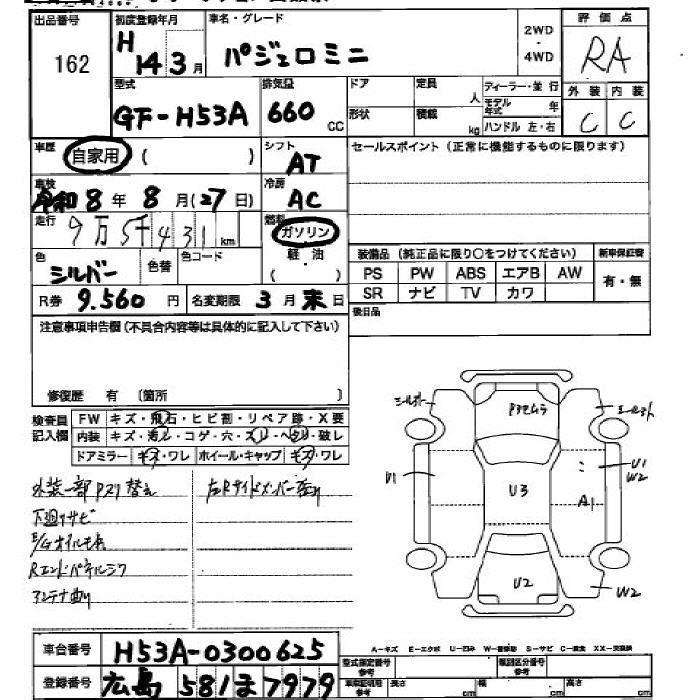 出品番号
162
初度登録年月
H 14 3月
車名・グレード
パジェロミニ
2WD
・
4WD
評価点
RA
型式
GF-H53A
排気量
660 CC
ドア
定員
人
ディーラー・並 行
モデル年式
年
形状
積載
kg
ハンドル 左・右
外装
内装
C
C
車歴
自家用 ( )
シフト
AT
セールスポイント (正常に機能するものに限ります)
車検
令和8年 8月(27日)
冷房
AC
走行
9万5千431km
燃料
ガソリン
軽・油
( )
色
シルバー
色替
色コード
装備品 (純正品に限り○をつけてください)
新車保証書
PS PW ABS エアB AW
有・無
SR ナビ TV カワ
R券 9.560 円
名変期限 3月末日
後日品
注意事項申告欄 (不具合内容等は具体的に記入して下さい)
修復歴 有 〔箇所 〕
検査員記入欄
FW キズ・飛石・ヒビ割・リペア跡・X要
内装 キズ・汚レ・コゲ・穴・スレ・ヘタリ・破レ
ドアミラー キズ・ワレ ホイール・キャップ キズ・ワレ
下廻りサビ
アンテナ曲り
U1
U3
U2
A1
U1
W2
W2
A-キズ E-エクボ U-凹み W-補修跡 S-サビ C-腐食 XX-交換済
車台番号
H53A-0300625
登録番号
広島 581 ま 7979
型式指定番号
参考
類別区分番号
参考
車庫証明用
参考
長さ
cm
幅
cm
高さ
cm